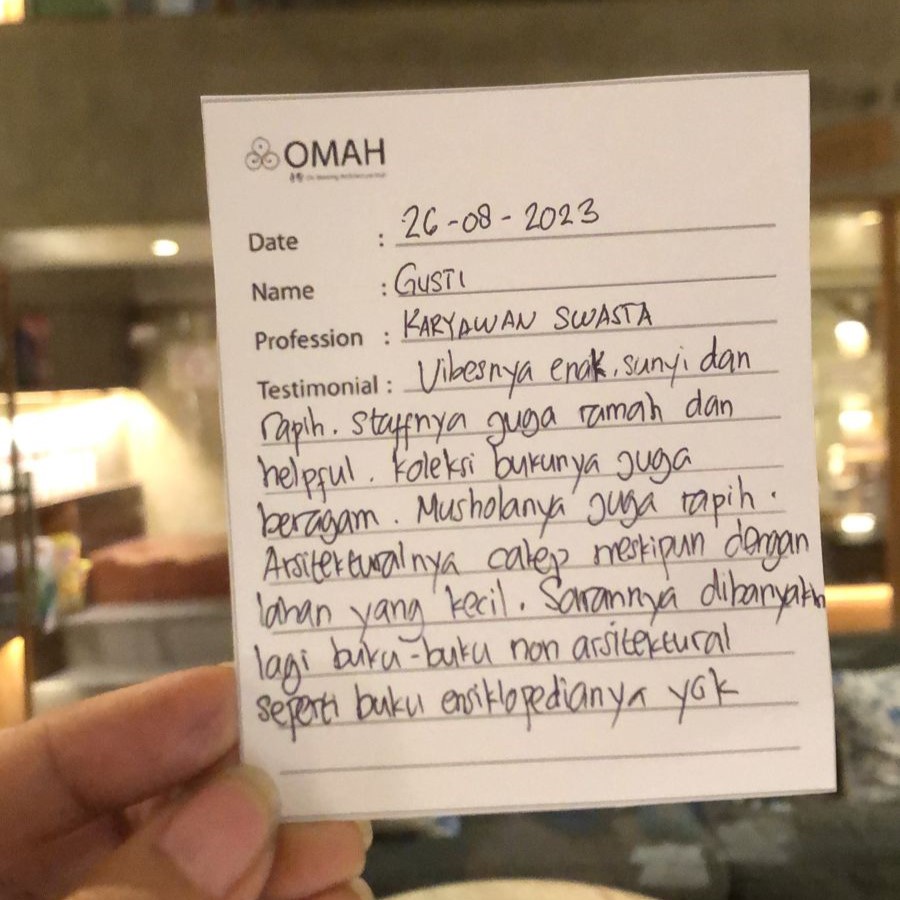 OMAH
Date : 26-08-2023
Name : GUSTI
Profession : KARYAWAN SWASTA
Testimonial : Vibesnya enak, sunyi dan
rapih. Staffnya juga ramah dan
helpful. Koleksi bukunya juga
beragam. Musholanya juga rapih.
Arsitekturalnya cakep meskipun dengan
lahan yang kecil. Sarannya dibanyakin
lagi buku-buku non arsitektural
seperti buku ensiklopedianya yak